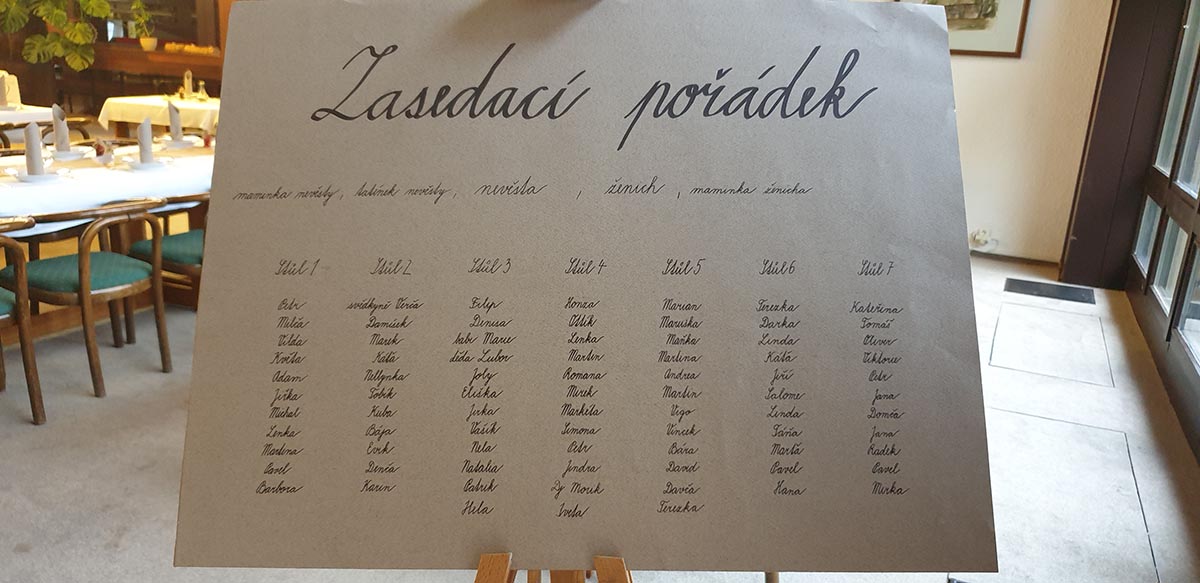 Zasedací pořádek
maminka nevěsty, tatínek nevěsty, nevěsta , ženich , maminka ženicha
Stůl 1 Stůl 2 Stůl 3 Stůl 4 Stůl 5 Stůl 6 Stůl 7
Petr svědkyně Verča Filip Honza Marian Terezka Kateřina
Milča Damísek Denisa Ostík Maruška Darka Tomáš
Vilda Marek babi Marie Lenka Maňka Linda Oliver
Květa Káťa děda Lubor Martin Martina Káťa Viktorie
Adam Nellynka Joly Romana Andrea Jiří Petr
Jiřka Tobík Eliška Mirek Martin Salome Jana
Michal Kuba Jirka Markéta Virgo Linda Domča
Lenka Bája Vašík Simona Vincek Táňa Jana
Martina Evik Nela Petr Bára Marťa Radek
Pavel Denča Natalia Jindra David Pavel Pavel
Barbora Karin Patrik Dj Morik Davča Hana Mirka
Hela Iveta Terezka